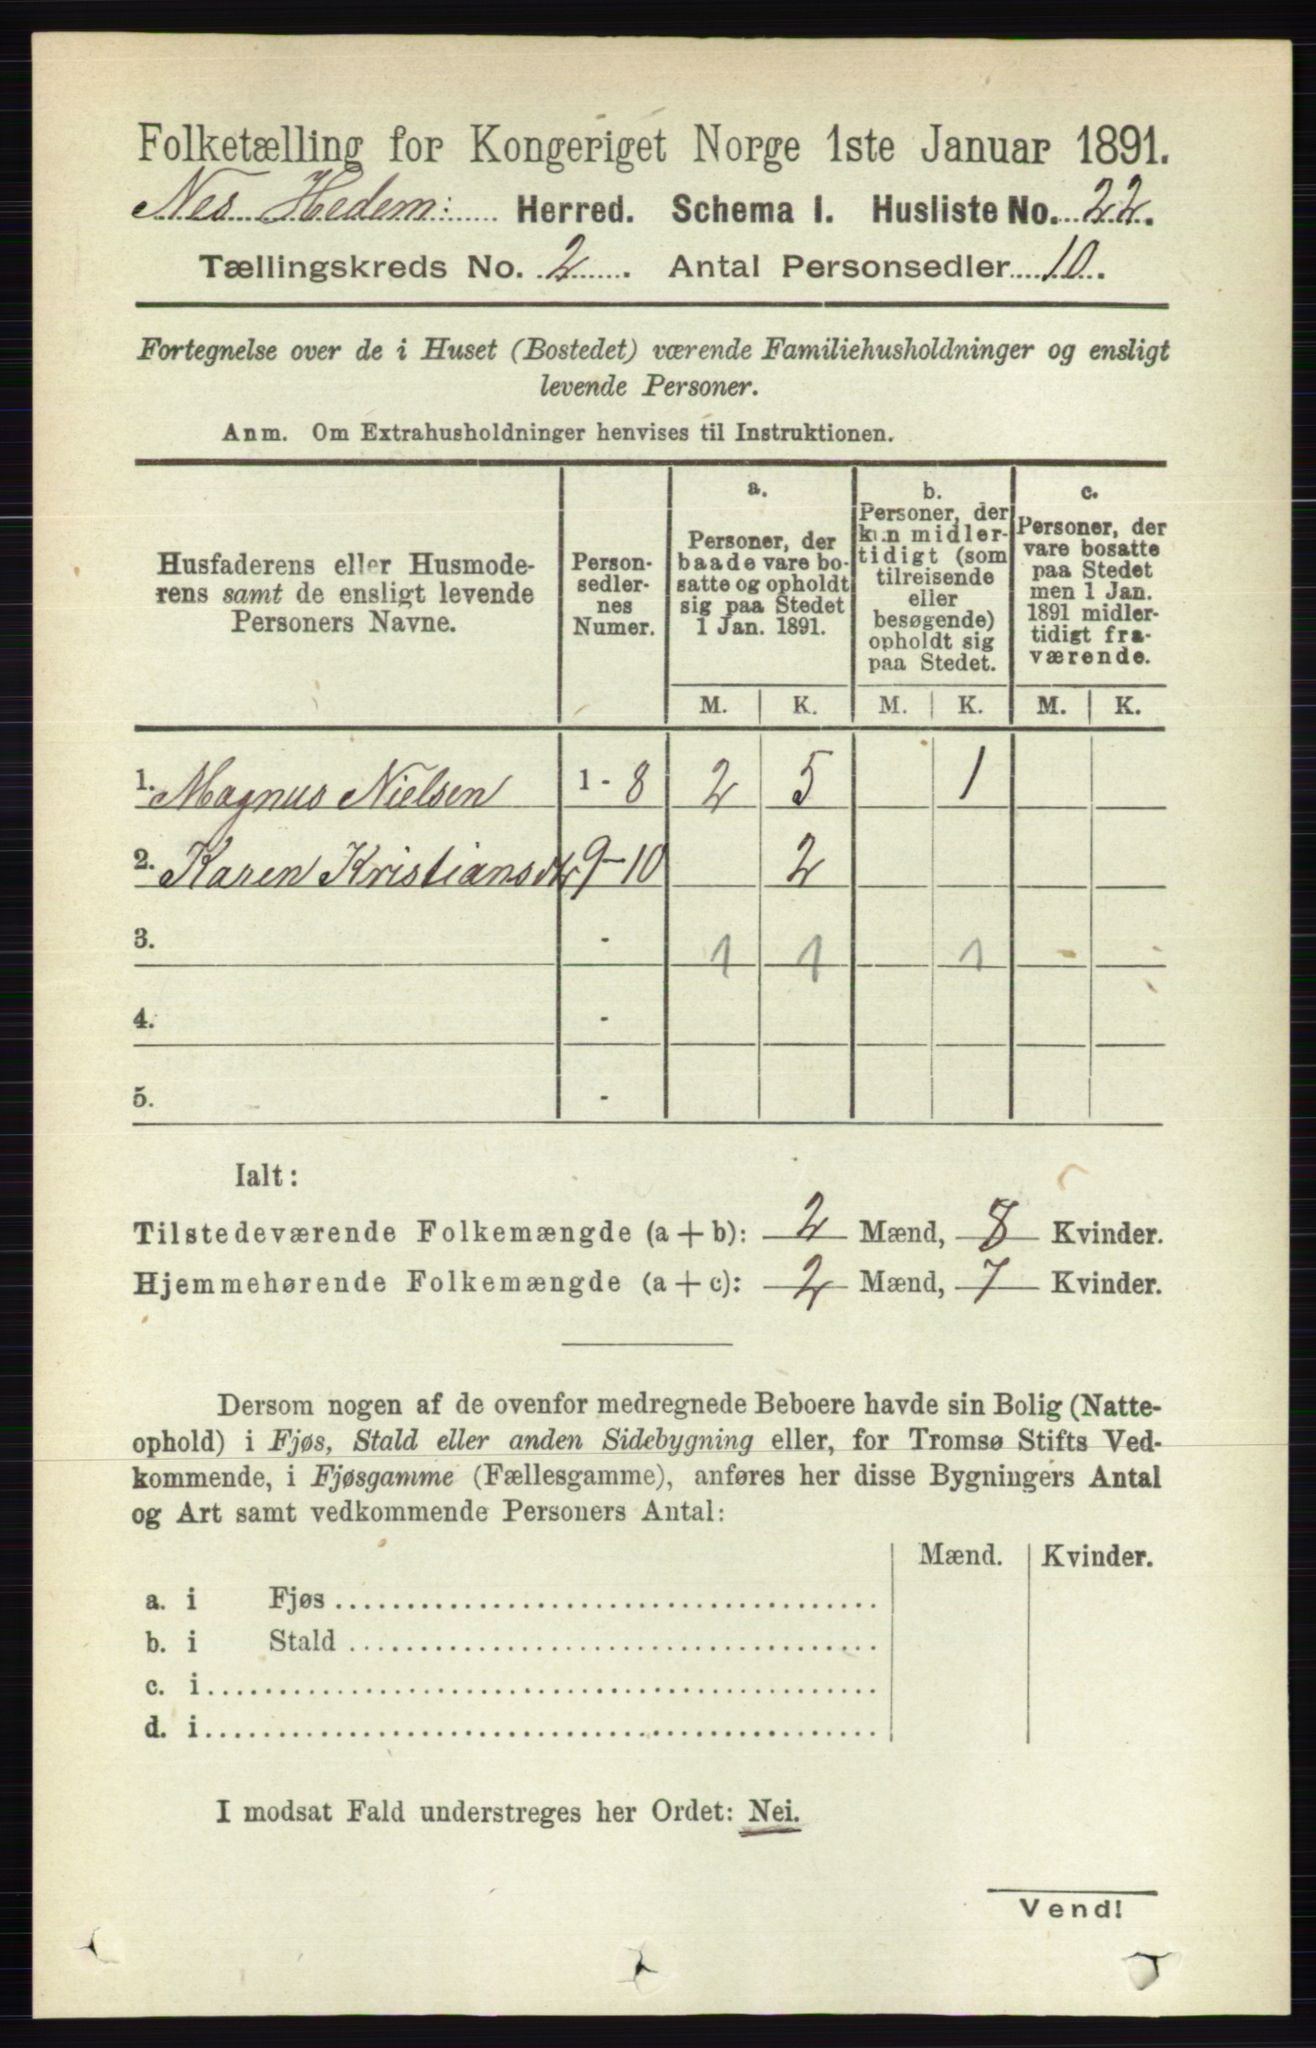 Folketælling for Kongeriget Norge 1ste Januar 1891.
Nes Hedem: Herred. Schema I. Husliste No. 22.
Tællingskreds No. 2. Antal Personsedler 10.
Fortegnelse over de i Huset (Bostedet) værende Familiehusholdninger og ensligt
levende Personer.
Anm. Om Extrahusholdninger henvises til Instruktionen.
Husfaderens eller Husmode-
rens samt de ensligt levende
Personers Navne.
Person-
sedler-
nes
Numer.
a.
Personer, der
baade vare bo-
satte og opholdt
sig paa Stedet
1 Jan. 1891.
b.
Personer, der
kun midler-
tidigt (som
tilreisende
eller
besøgende)
opholdt sig
paa Stedet.
c.
Personer, der
vare bosatte
paa Stedet
men 1 Jan.
1891 midler-
tidigt fra-
værende.
M. K. M. K. M. K.
1. Magnus Nielsen 1 - 8 2 5 1
2. Karen Kristiansdt 9-10 2
3. - 1 1 1
4. -
5. -
Ialt:
Tilstedeværende Folkemængde (a + b): 2 Mænd, 8 Kvinder.
Hjemmehørende Folkemængde (a + c): 2 Mænd, 7 Kvinder.
Dersom nogen af de ovenfor medregnede Beboere havde sin Bolig (Natte-
ophold) i Fjøs, Stald eller anden Sidebygning eller, for Tromsø Stifts Ved-
kommende, i Fjøsgamme (Fællesgamme), anføres her disse Bygningers Antal
og Art samt vedkommende Personers Antal:
Mænd. Kvinder.
a. i Fjøs
b. i Stald
c. i
d. i
I modsat Fald understreges her Ordet: Nei.
Vend!